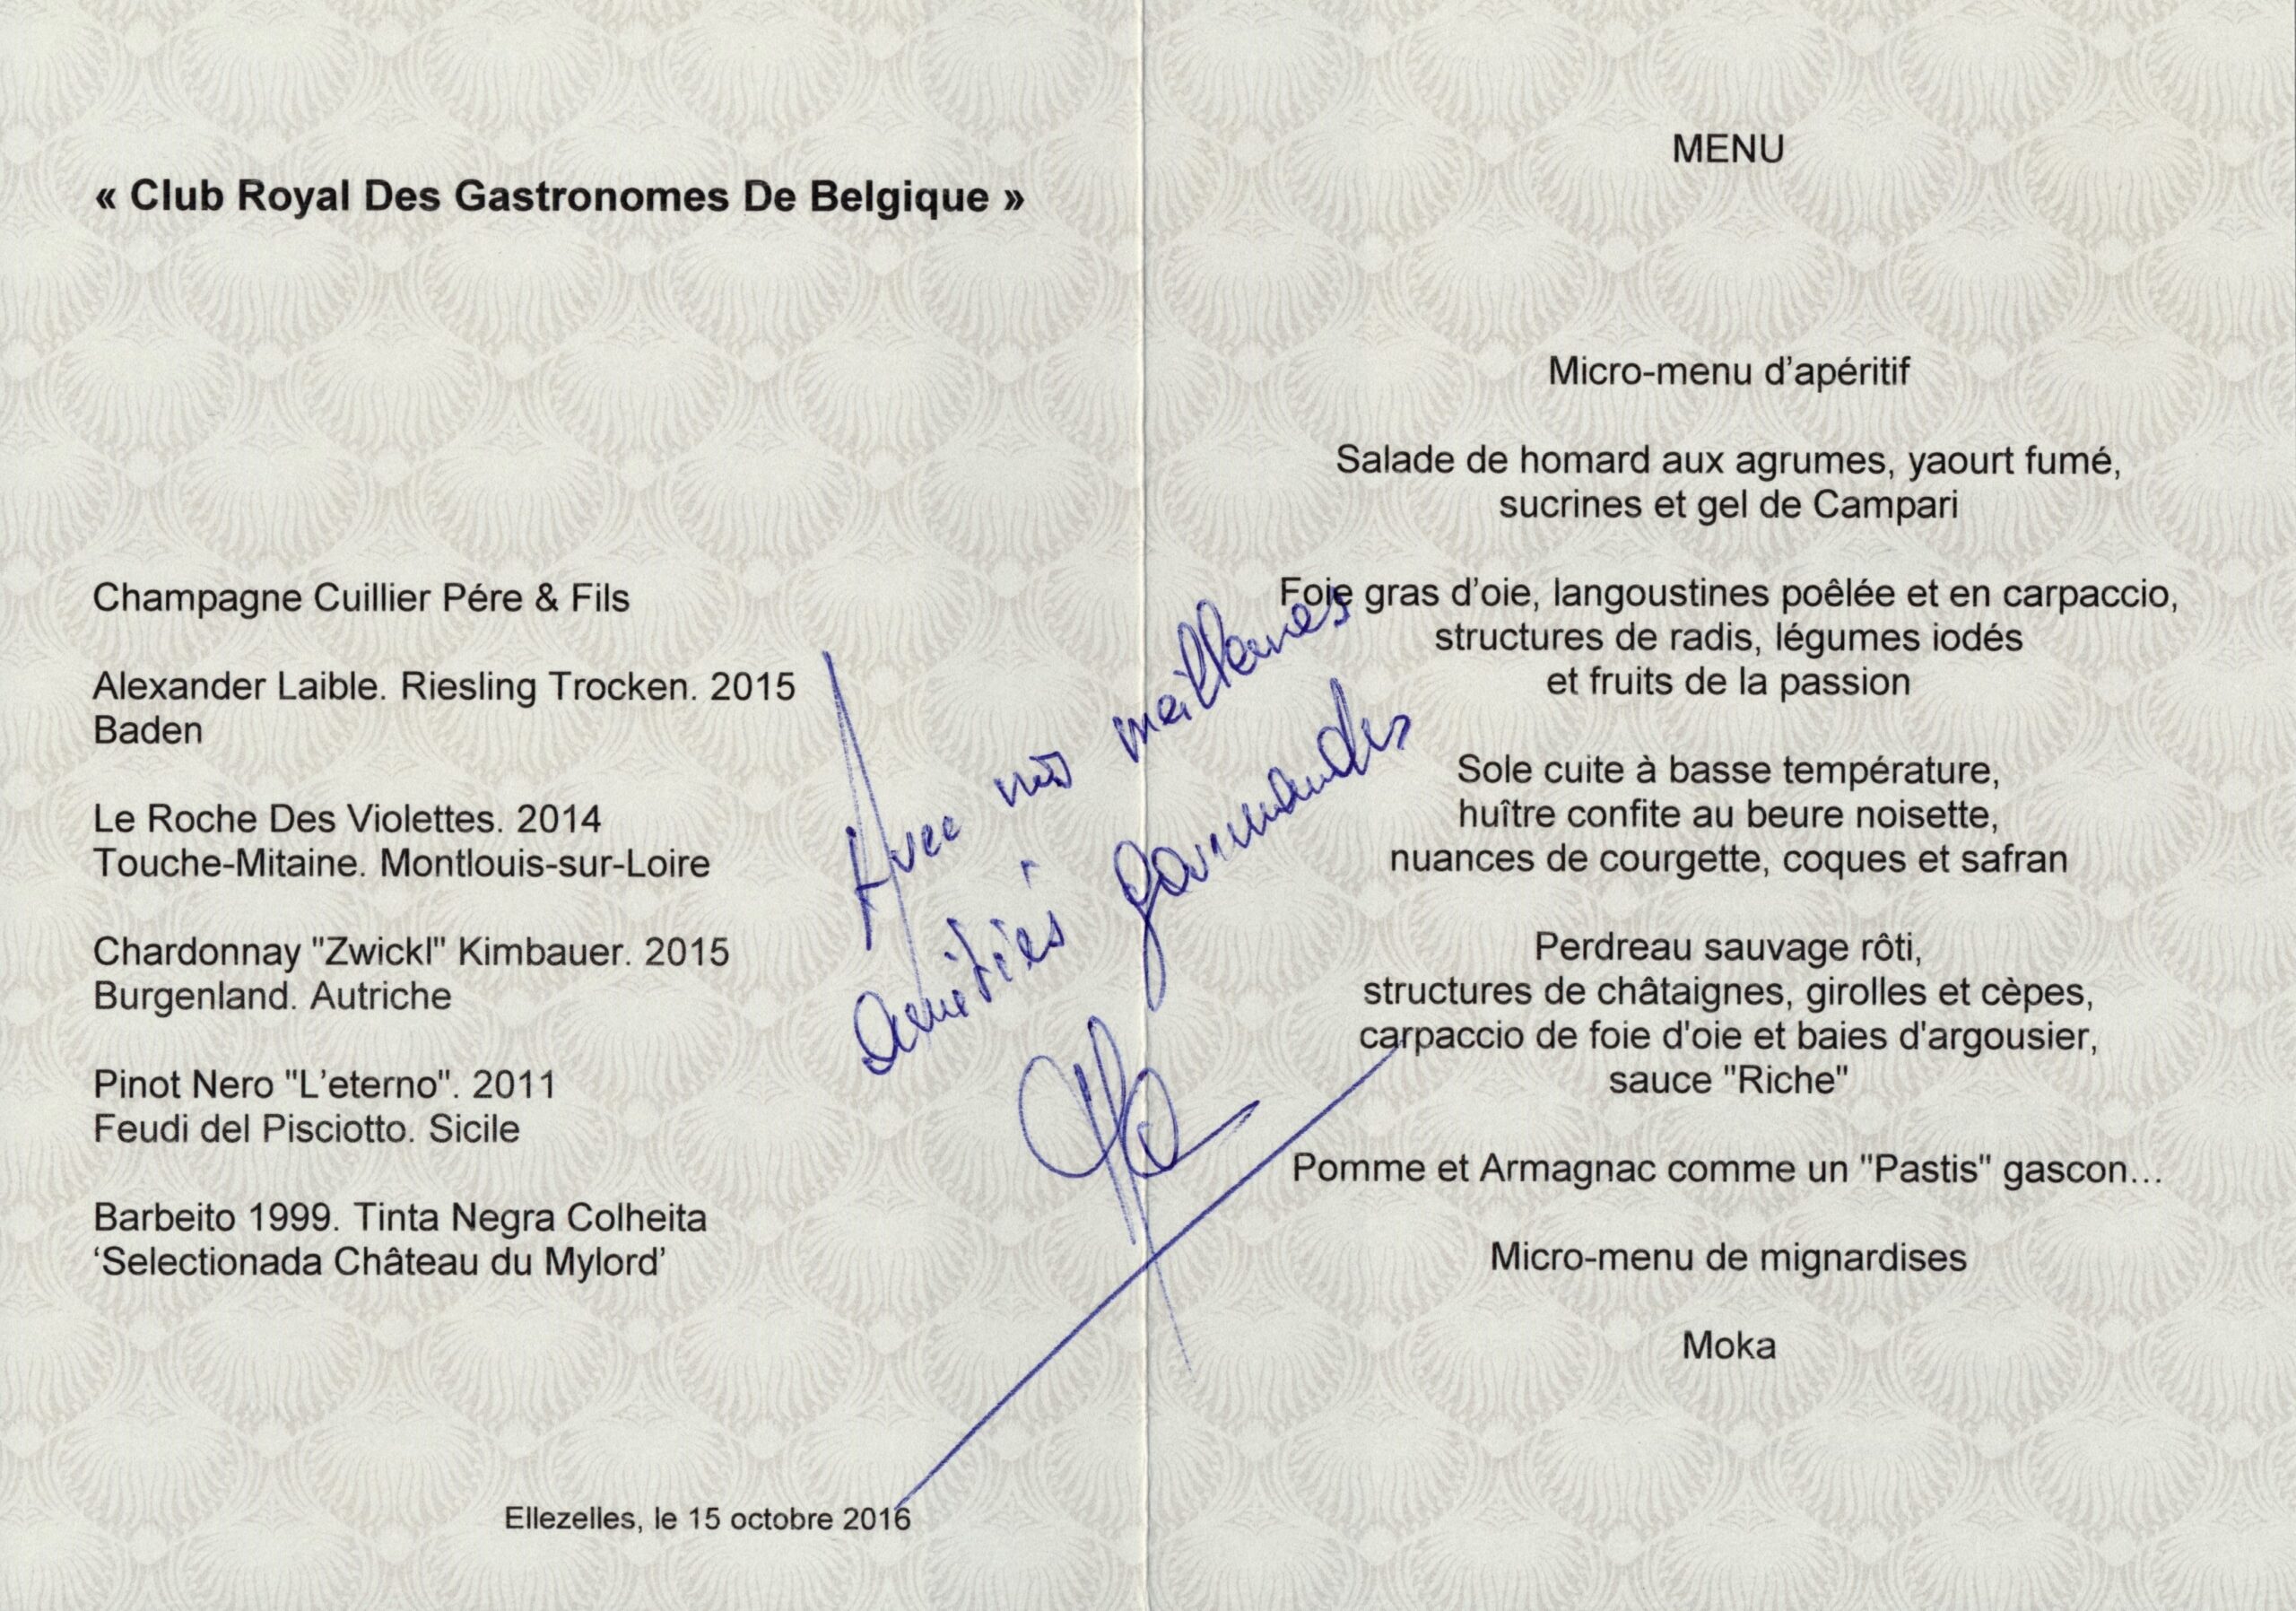 « Club Royal Des Gastronomes De Belgique »
Champagne Cuillier Pére & Fils
Alexander Laible. Riesling Trocken. 2015
Baden
Le Roche Des Violettes. 2014
Touche-Mitaine. Montlouis-sur-Loire
Chardonnay "Zwickl" Kimbauer. 2015
Burgenland. Autriche
Pinot Nero "L’eterno". 2011
Feudi del Pisciotto. Sicile
Barbeito 1999. Tinta Negra Colheita
‘Selectionada Château du Mylord’
Ellezelles, le 15 octobre 2016
Avec nos meilleures
amitiés gourmandes
MENU
Micro-menu d’apéritif
Salade de homard aux agrumes, yaourt fumé,
sucrines et gel de Campari
Foie gras d’oie, langoustines poêlée et en carpaccio,
structures de radis, légumes iodés
et fruits de la passion
Sole cuite à basse température,
huître confite au beure noisette,
nuances de courgette, coques et safran
Perdreau sauvage rôti,
structures de châtaignes, girolles et cèpes,
carpaccio de foie d'oie et baies d'argousier,
sauce "Riche"
Pomme et Armagnac comme un "Pastis" gascon...
Micro-menu de mignardises
Moka